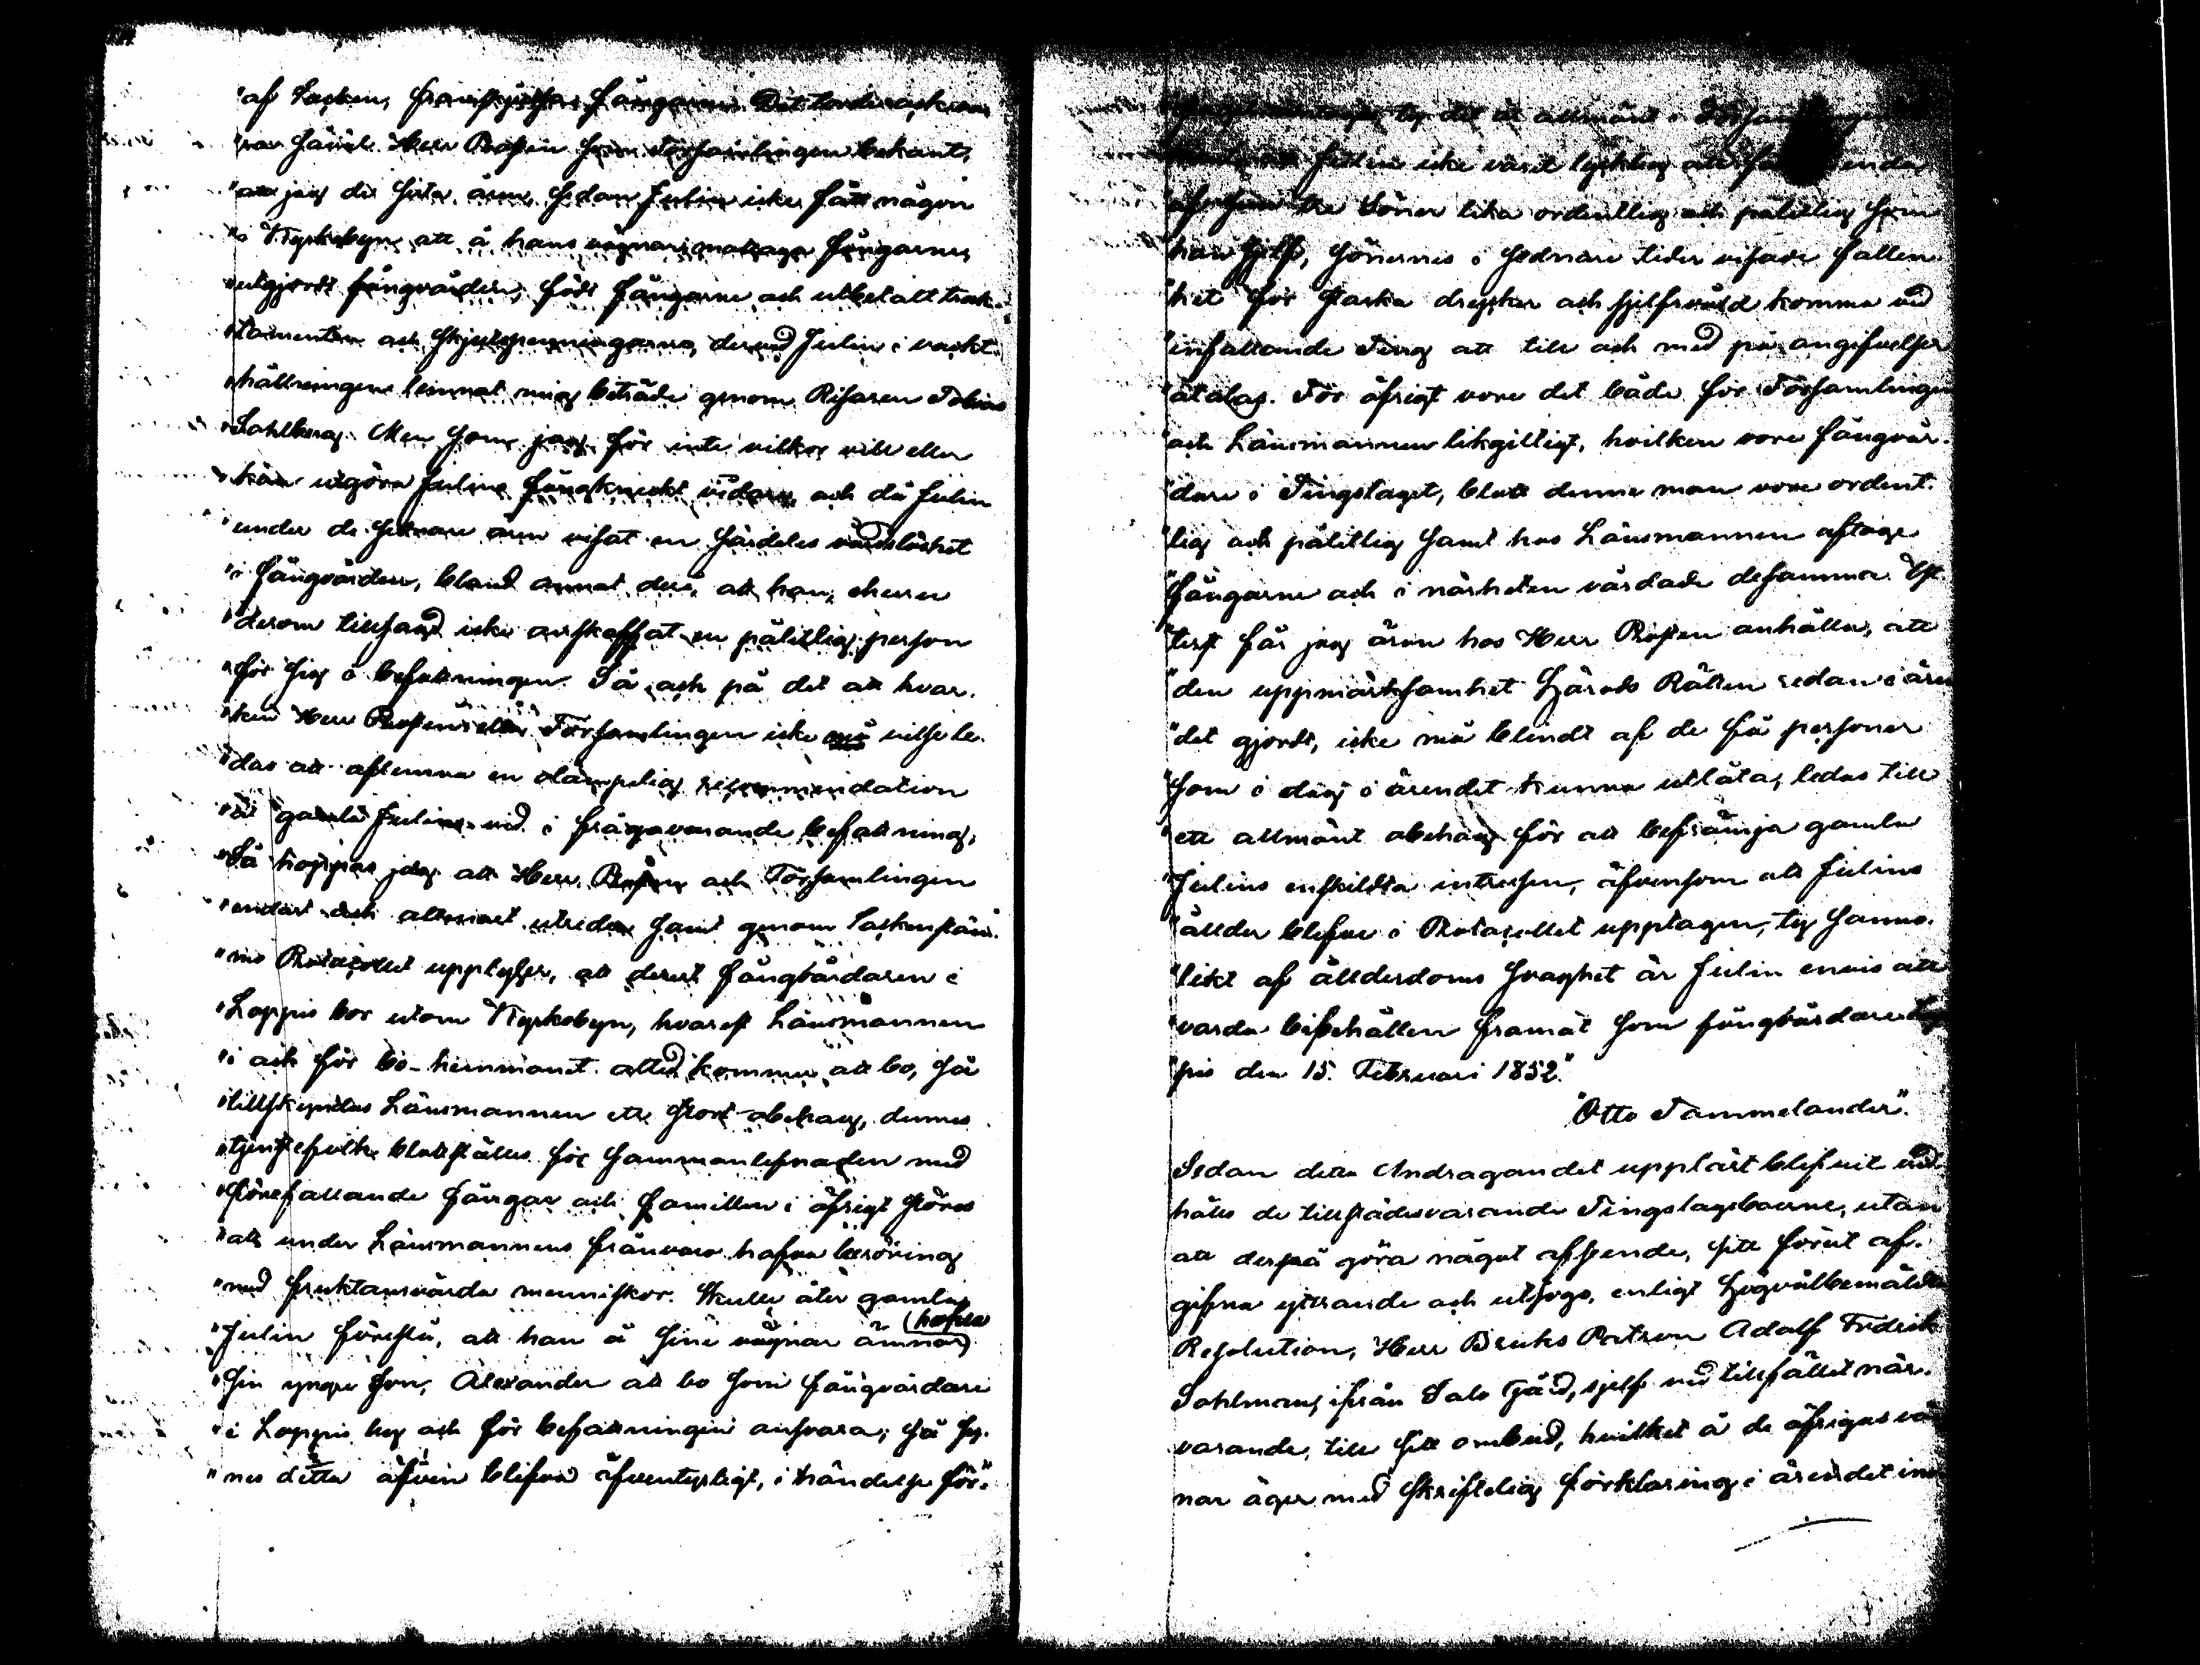 "af Socken, fångarne. Det torde ock
"ra såväl Herr Prosten som Församlingen bekant,
"att jag de sista åren, sedan Julin icke fått någon
"i Kyrkobyn att å hans vägnar mottaga fångarne,
"utgjordt fångvården, födt fångarne och utbetalt trak-
"tamenten och skjutspenningarna, dervid Julin i vakt-
"hållningen lemnat mig biträde genom Risaren Tobias
"Sahlberg. Men som jag för inte vilkor vill eller
"kan utgöra Julins fångknekt vidare, och då Julin
"under de sednare åren visat en särdeles vårdslöshet
"i fångvården, bland annat deri, att han, ehuru
"derom tillsagd icke anskaffat en pålitlig person
"för sig i befattningen. Så, och på det att hvar-
"ken Herr Prosten eller Församlingen icke må vilsele-
"das att aflemna en olämpelig recommendation
"åt gamla Julin vid i frågavarande befattning,
"Så hoppas jag att Herr Prosten och Församlingen
"endast och allenast utreder samt genom Sockenstäm-
"mo Protocollet upplyser, att derest fångvårdaren i
"Loppis bor utom Kyrkobyn, hvarest Länsmannen
"i och för bo-hemmanet alltid kommer att bo, så
"tillskyndas Länsmannen ett stort obehag, dennes
"tjenstefolk blottställes för sammanlefnaden med
"förefallande fångar och familien i öfrigt störes
"att under Länsmannens frånvaro hafva beröring
"med fruktansvärda menniskor. Skulle åter gamla
"Julin föreslå, att han å sine vägnar ämnar (hafva)
"sin yngre son, Alexander att bo som fångvårdare
"i Loppis by och för befattningen ansvara; så sy-
"nes detta äfven blifva äfventyrligt, i händelse för-"
ty det är allmänt i Församlingen
Julin icke varit lycklig att få enda
"af sina tre Söner lika ordentlig och pålitlig som
"han sjelf, Sönernes i sednare tider visade fallen-
"het för starka drycker och sjelfsvåld komma vid
"infallande Ting att till och med på angifvelser
"åtalas. För öfrigt vore det både för Församlingen
"och Länsmannen likgiltigt, hvilken vore fångvår-
"dare i Tingslaget, blott denne man vore ordent-
"lig och pålitlig samt hos Länsmannen aftoge
"fångarne och i närheten vårdade desamma. Yt-
"terst får jag äran hos Herr Prosten anhålla, att
"den uppmärksamhet Härads Rätten redan i ären-
"det gjordt, icke må blindt af de få personer
"som i dag i ärendet kunna utlåta, ledas till
"ett allmänt obehag för att befrämja gamla
"Julins enskildta intressen, äfvensom att Julins
"ållder blefve i Protocollet upptagen, ty sanno-
"likt af ållderdoms svaghet är Julin envis att
"varda bibehållen framåt som fångvårdare. Lop-
"pis den 15. Februari 1852."
"Otto Tammelander".
Sedan detta Andragandet uppläst blifvit vid-
hålls de tillstädesvarande Tingslagsboerne, utan
att derpå göra något afseende, sitt förut af-
gifna yttrande och utsågo, enligt Högvälbemäldte
Resolution, Herr Bruks Patron Adolf Fredrik
Sahlman, ifrån Salo Gård, sjelf vid tillfället när-
varande, till sitt ombud, hvilket å de öfrigas väg-
nar äger med skriftelig förklaring i ärendet in-